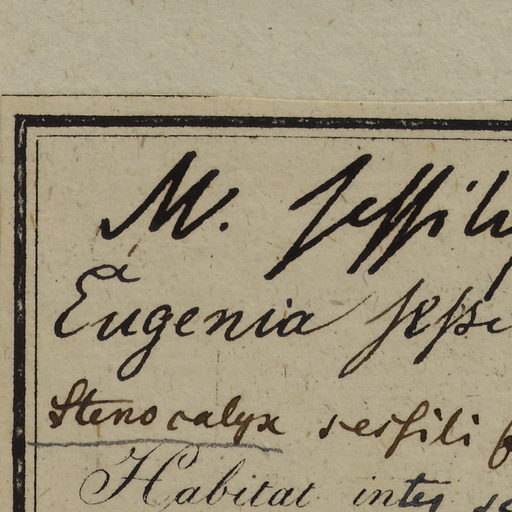 M. sessili
Eugenia sessi
Stenocalyx sessili f
Habitat inter se